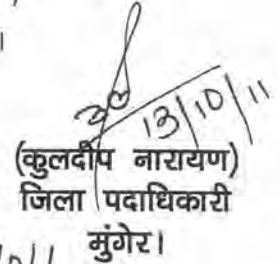 ।
13/10/11
(कुलदीप नारायण)
जिला पदाधिकारी
मुंगेर।